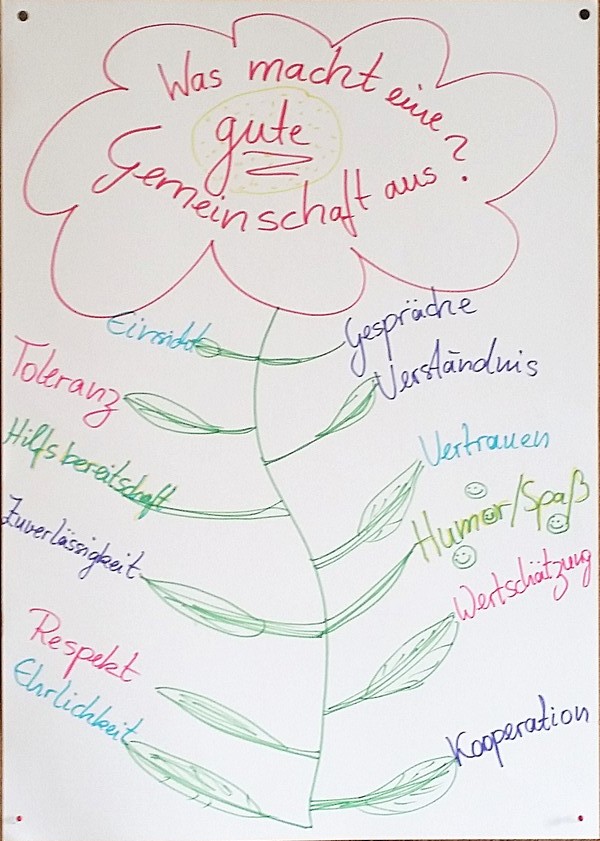 Was macht eine
gute
Gemeinschaft aus?
Einsicht
Gespräche
Toleranz
Verständnis
Hilfsbereitschaft
Vertrauen
Zuverlässigkeit
Humor/Spaß
Wertschätzung
Respekt
Ehrlichkeit
Kooperation